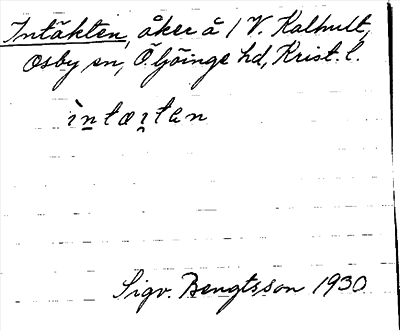 Intäkten, åker å 1 V. Kalhult,
Osby sn, Ö. Göinge hd, Krist. l.
Sigv. Bengtsson 1930